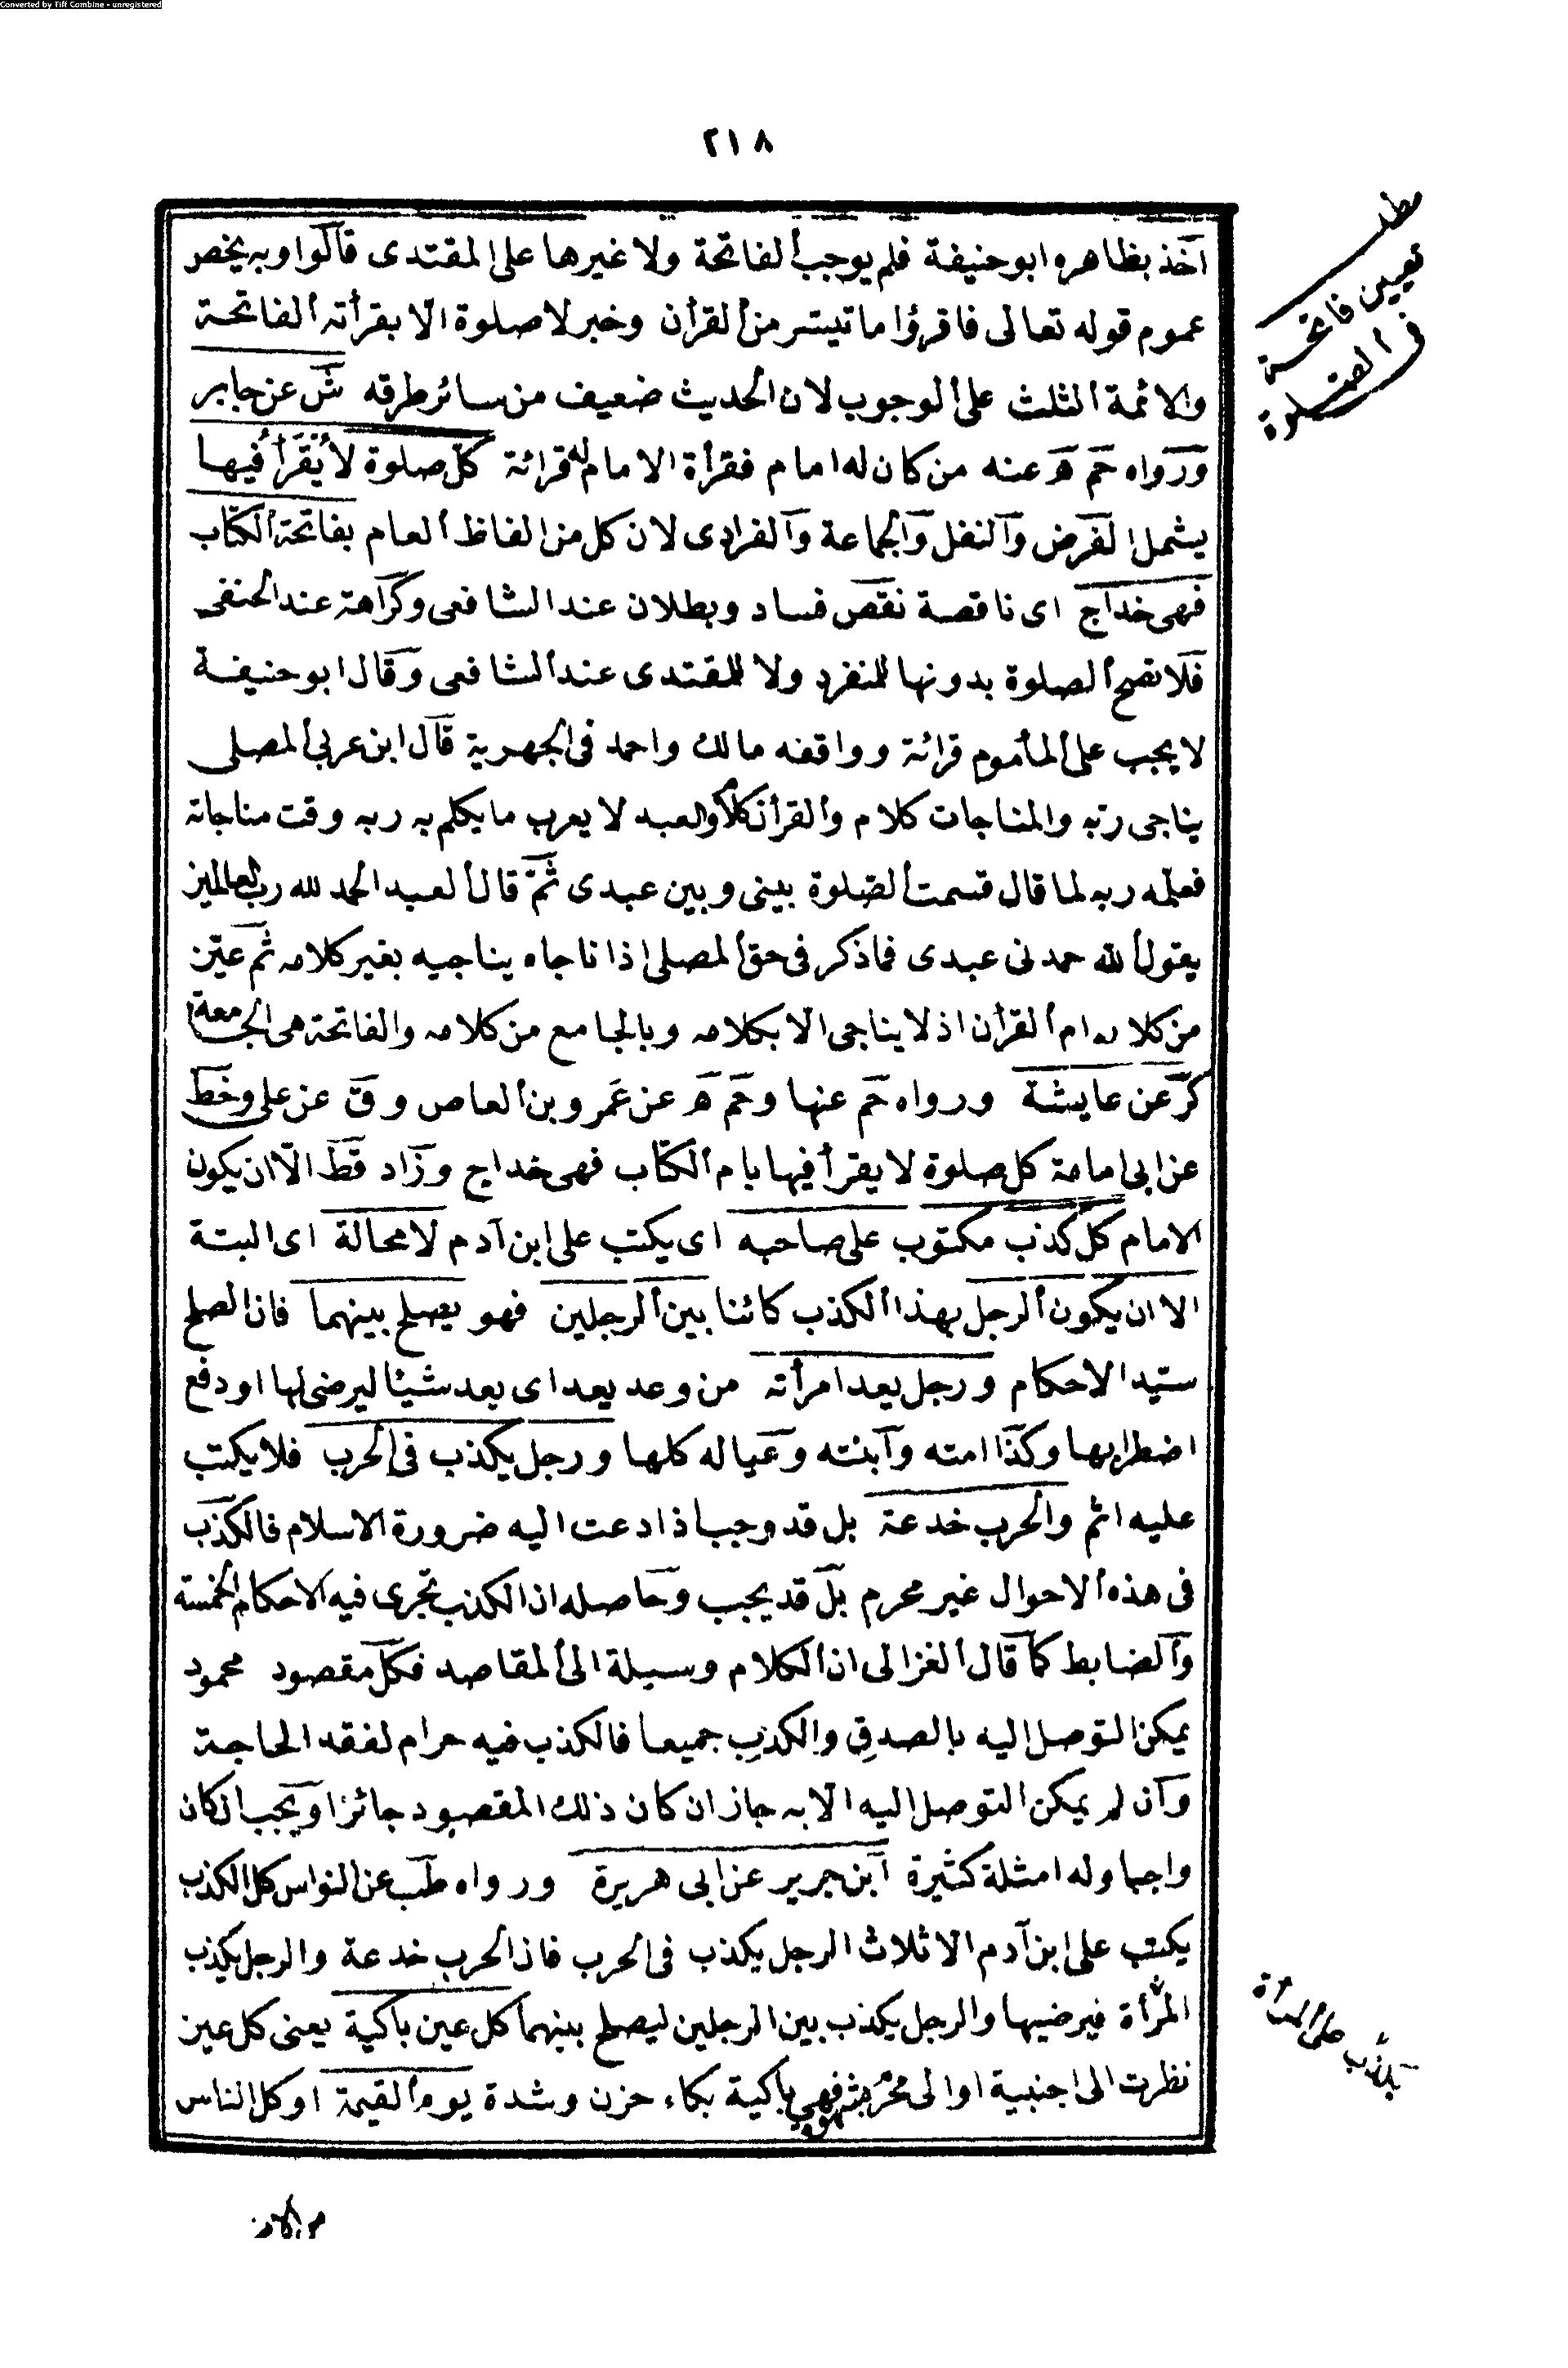 Converted by Tiff Combine - unregistered
٢١٨
مطلب
تعيين فاتحة
فى الصلوة
اخذ بظاهره ابو حنيفة فلم يوجب الفاتحة ولا غيرها على المقتدى قالوا وبه يخص
عموم قوله تعالى فاقرؤا ما تيسر من القرأن وخبر لا صلوة الا بقرأته الفاتحة
والائمة الثلث على الوجوب لان الحديث ضعيف من سائر طرقه ش عن جابر
ورواه حم ه عنه من كان له امام فقرأة الامام له قرائة كل صلوة لا يقرأ فيها
يشمل الفرض والنفل والجماعة والفرادى لان كل من الفاظ العام بفاتحة الكتاب
فهى خداج اى ناقصة نقص فساد وبطلان عند الشافعى وكراهة عند الحنفى
فلا تصح الصلوة بدونها للمنفرد ولا للمقتدى عند الشافعى وقال ابو حنيفة
لا يجب على المأموم قرائة ووافقه مالك واحمد فى الجهرية قال ابن عربى المصلى
يناجى ربه والمناجات كلام والقرأن كلام والعبد لا يعرب ما يكلم به ربه وقت مناجاته
فعلمه ربه لما قال قسمت الصلوة بينى وبين عبدى ثم قال العبد الحمد لله رب العالمين
يقول الله حمدنى عبدى فما ذكر فى حق المصلى اذا ناجاه يناجيه بغير كلامه ثم عين
من كلامه ام القرأن اذ لا يناجى الا بكلامه وبالجامع من كلامه والفاتحة هى الجامعة
كر عن عايشة ورواه حم عنها وحم ه عن عمرو بن العاص وق عن على وخط
عن ابى امامة كل صلوة لا يقرأ فيها بام الكتاب فهى خداج وزاد قط الا ان يكون
الامام كل كذب مكتوب على صاحبه اى يكتب على ابن آدم لا محالة اى البتة
الا ان يكون الرجل بهذا الكذب كائنا بين الرجلين فهو يصلح بينهما فان الصلح
سيد الاحكام ورجل يعد امرأته من وعد يعد اى يعد شيئا ليرضى لها او دفع
اضطرابها وكذا امته وابنته وعياله كلها ورجل يكذب فى الحرب فلا يكتب
عليه اثم والحرب خدعة بل قد وجب اذا دعت اليه ضرورة الاسلام فالكذب
فى هذه الاحوال غير محرم بل قد يجب وحاصله ان الكذب تجرى فيه الاحكام الخمسة
والضابط كما قال الغزالى ان الكلام وسيلة الى المقاصد فكل مقصود محمود
يمكن التوصل اليه بالصدق والكذب جميعا فالكذب فيه حرام لفقد الحاجة
وان لم يمكن التوصل اليه الا به جاز ان كان ذلك المقصود جائزا ويجب ان كان
واجبا وله امثلة كثيرة ابن جرير عن ابى هريرة ورواه طب عن النواس كل الكذب
يكتب على ابن آدم الا ثلاث الرجل يكذب فى الحرب فان الحرب خدعة والرجل يكذب
المرأة فيرضيها والرجل يكذب بين الرجلين ليصلح بينهما كل عين باكية يعنى كل عين
نظرت الى اجنبية او الى محرم بشهوة فهى باكية بكاء حزن وشدة يوم القيمة او كل الناس
يكذب على المرأة